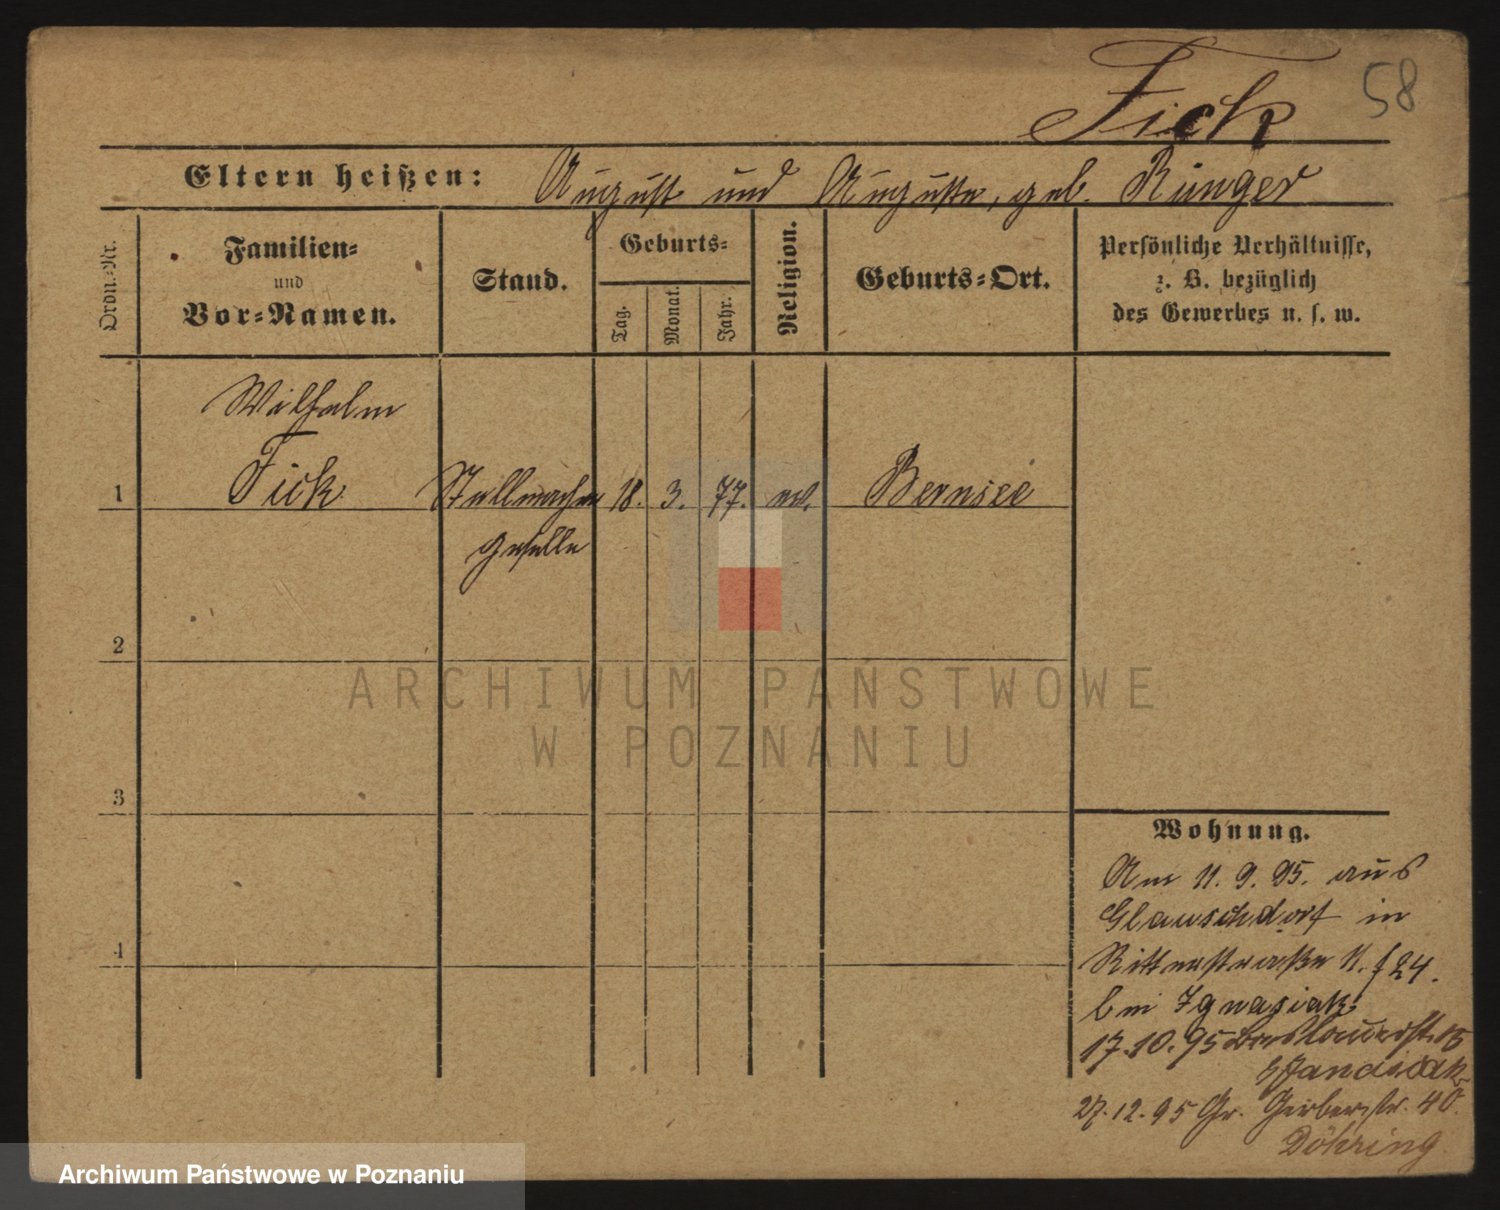 Fick
58
Eltern heißen: August und Auguste, geb. Rünger
Ordn.-Nr.
Familien-
und
Vor-Namen.
Stand.
Geburts-
Tag.
Monat.
Jahr.
Religion.
Geburts-Ort.
Persönliche Verhältnisse,
z. B. bezüglich
des Gewerbes u. s. w.
Wilhelm
1 Fick Stellmacher 18. 3. 77. ev. Bernsee
geselle
2
ARCHIWUM PAŃSTWOWE
W POZNANIU
3
Wohnung.
Am 11. 9. 95. aus
Glauschdorf in
Ritterstraße 11. f 24.
bei Ignasiak
17.10.95 Breslauerstr.
4
27.12.95 Gr. Gerberstr. 40.
Döhring
Archiwum Państwowe w Poznaniu